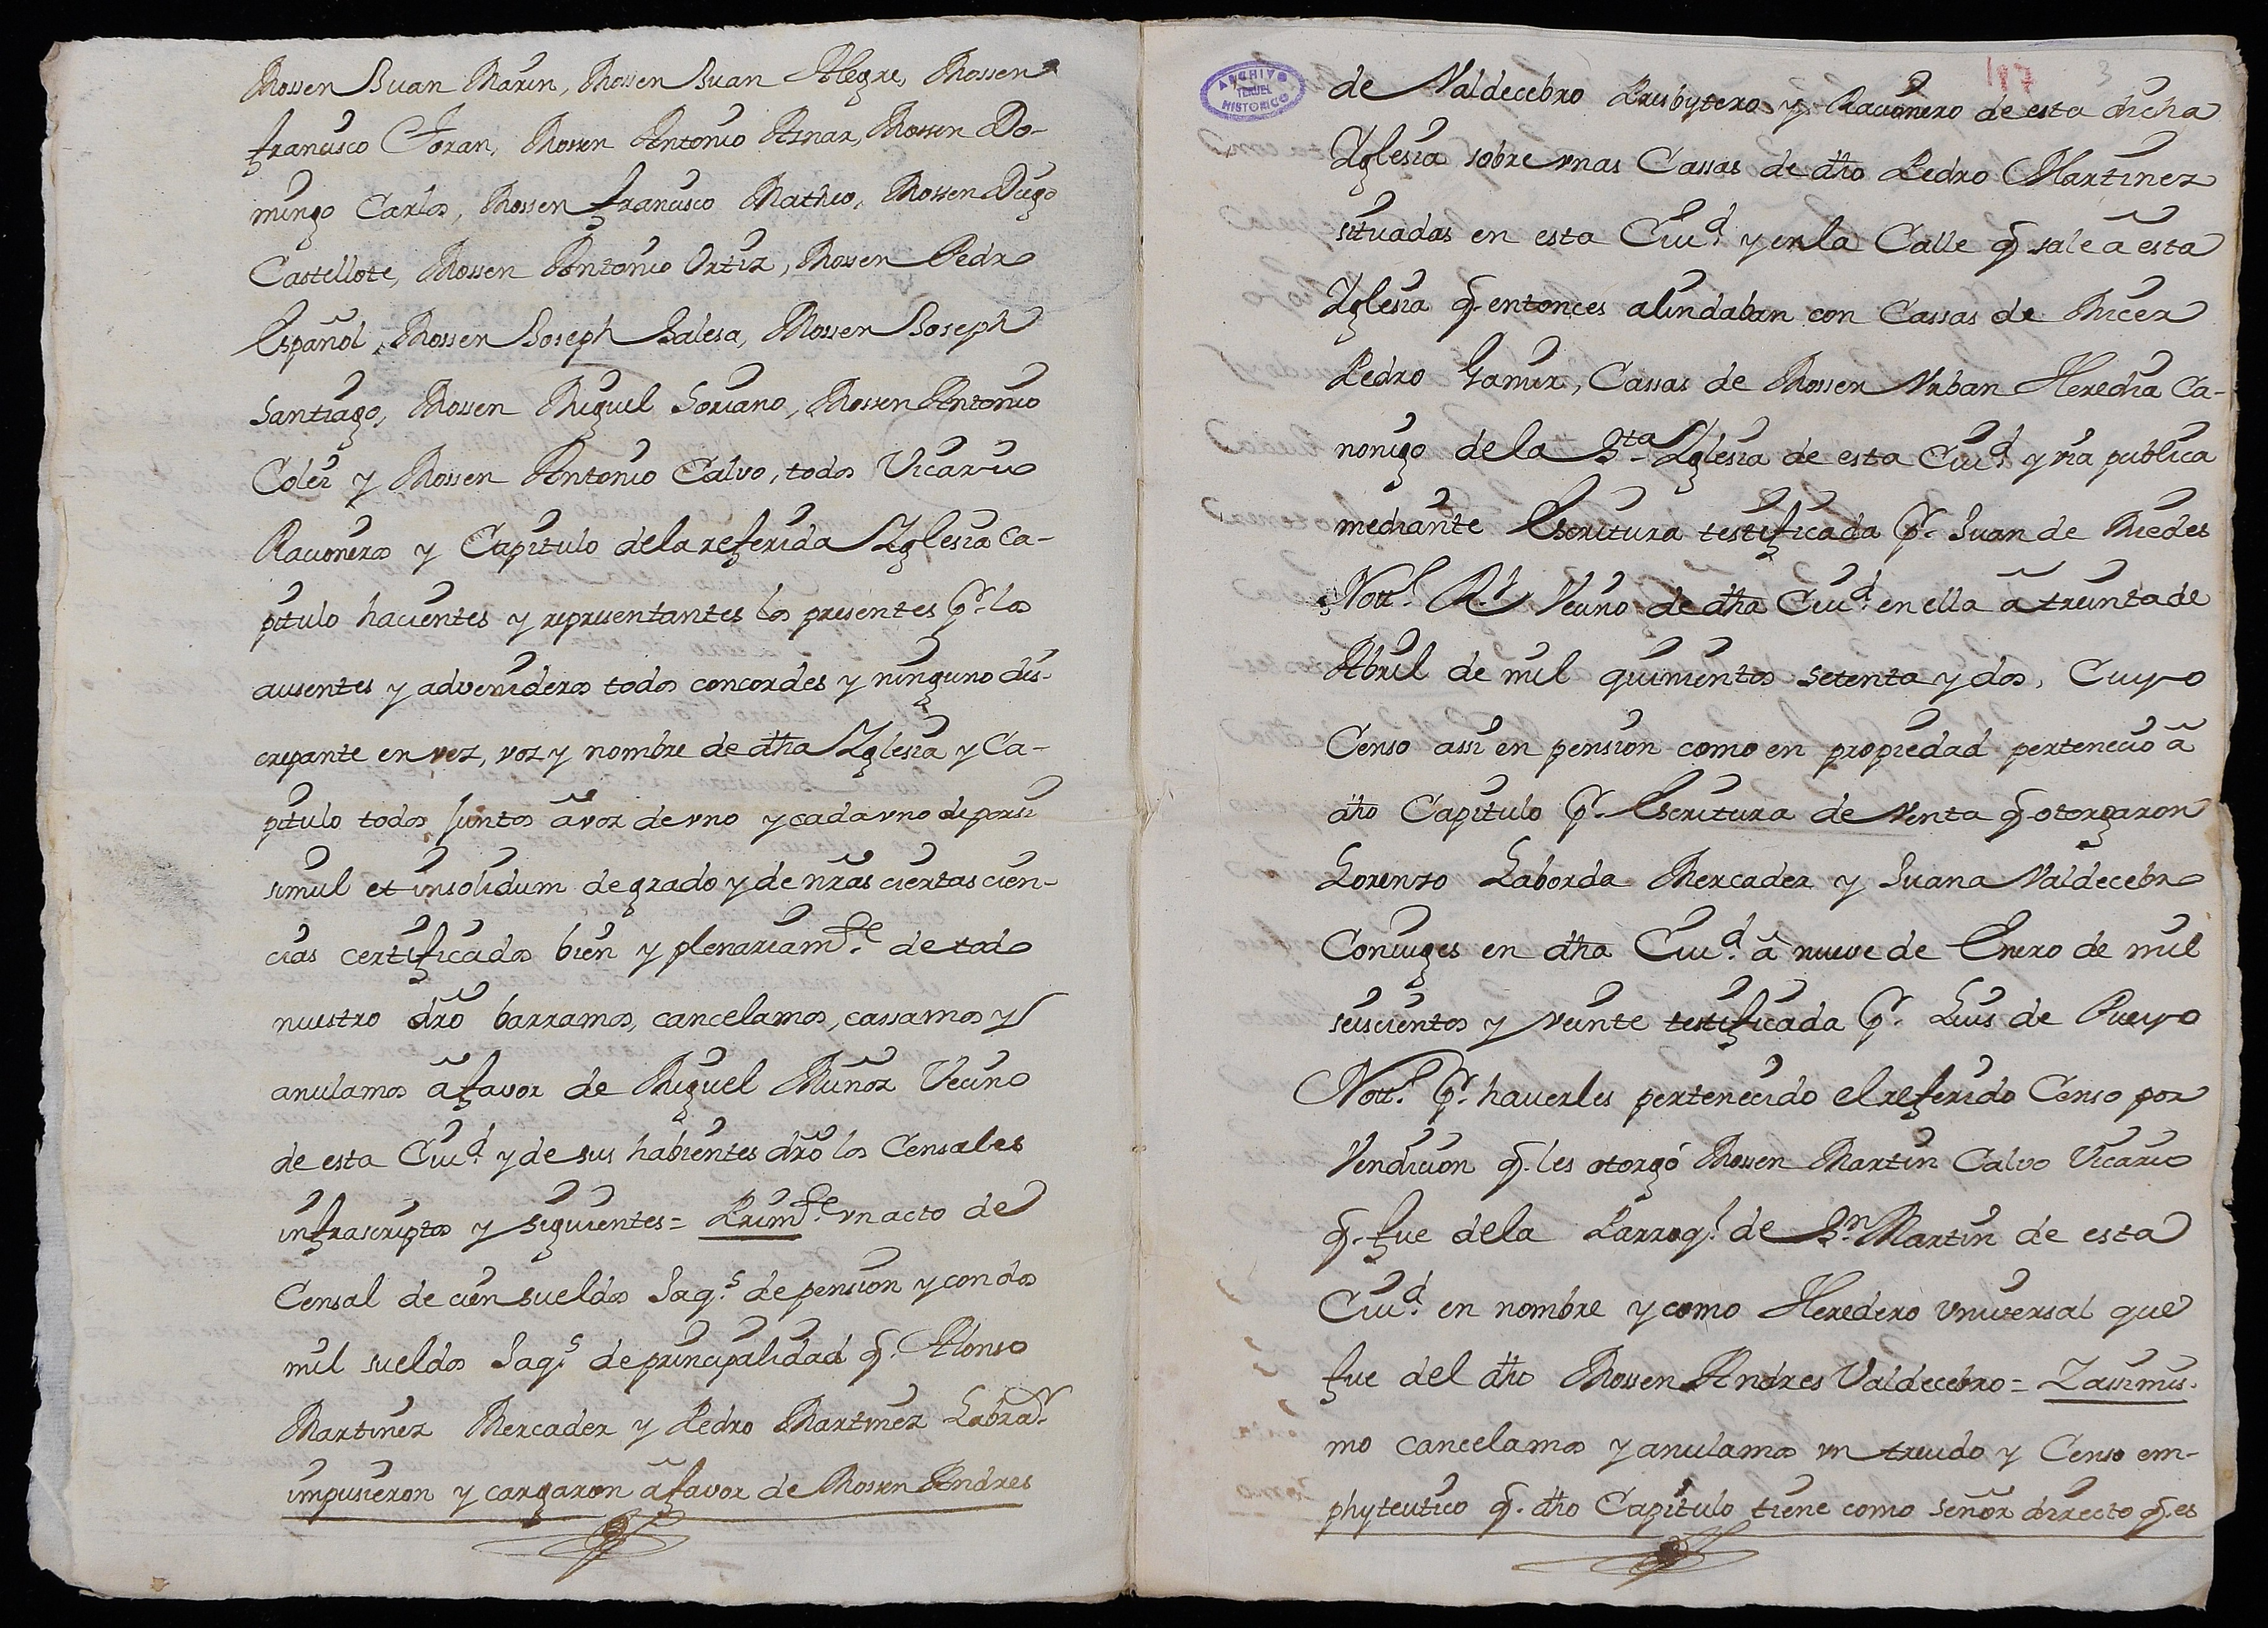 Mossen Juan Marin, Mossen Juan Alegre, Mossen
francisco Joran, Mossen Antonio Aznar, Mossen Do-
mingo Carlos, Mossen francisco Matheo, Mossen Diego
Castellote, Mossen Antonio Ortiz, Mossen Pedro
Español, Mossen Joseph Salesa, Mossen Joseph
Santiago, Mossen Miguel Soriano, Mossen Antonio
Coler y Mossen Antonio Calvo, todos Vicario
Racioneros y Capitulo dela referida Yglesia Ca-
pitulo hacientes y representantes los presentes pr. los
ausentes y advenideros todos concordes y ninguno dis-
crepante en vez, voz y nombre de dha Yglesia y Ca-
pitulo todos juntos â voz de vno y cada vno de por si
simul et insolidum de grado y de nras ciertas cien-
cias certificados bien y plenariamte. de todo
nuestro dro barramos, cancelamos, cassamos y
anulamos â favor de Miguel Muñoz Vecino
de esta Ciud. y de sus habientes dro los Censales
infrascriptos y siguientes = Primte. vn acto de
Censal de cien sueldos Jaqs. de pension y con dos
mil sueldos Jaqs. de principalidad q. Alonso
Martinez Mercader y Pedro Martinez Labrador.
impusieron y cargaron â favor de Mossen Andres
ARCHIVO
TERUEL
HISTORICO
de Valdecebro Presbytero y Racionero de esta dicha
Yglesia sobre vnas Cassas de dho Pedro Martinez
situadas en esta Ciud. y en la Calle q sale â esta
Yglesia q. entonces alindaban con Cassas de Micer
Pedro Gamir, Cassas de Mossen Vrban Heredia Ca-
nonigo dela Sta. Yglesia de esta Ciud. y via publica
mediante Escritura testificada pr. Juan de Miedes
Nott. Rl. Vecino de dha Ciud. en ella â treinta de
Abril de mil quinientos setenta y dos, Cuyo
Censo assi en pension como en propiedad pertenecio â
dho Capitulo pr. Escritura de Venta q. otorgaron
Lorenzo Laborda Mercader y Juana Valdecebro
Coniuges en dha Ciud. â nueve de Enero de mil
seiscientos y veinte testificada pr. Luis de Pueyo
Nott. pr. haverles pertenecido el referido Censo por
Vendicion q. les otorgó Mossen Martin Calvo Vicario
q. fue dela Parroql. de Sn. Martin de esta
Ciud. en nombre y como Heredero vniversal que
fue del dho Mossen Andres Valdecebro = Yassimis-
mo cancelamos y anulamos vn treudo y Censo em-
phyteutico q. dho Capitulo tiene como señor directo q. es